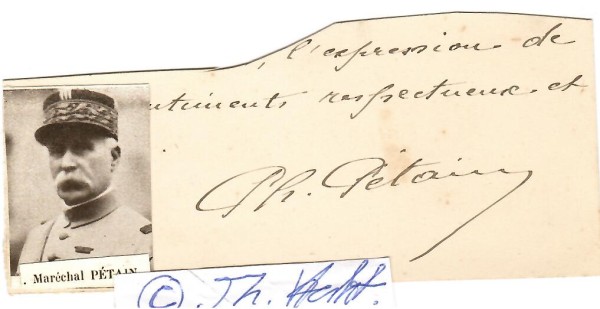 , l'expression de
ntiments respectueux et
Ph. Pétain
. Maréchal PÉTAIN
©. Th. Hecht.